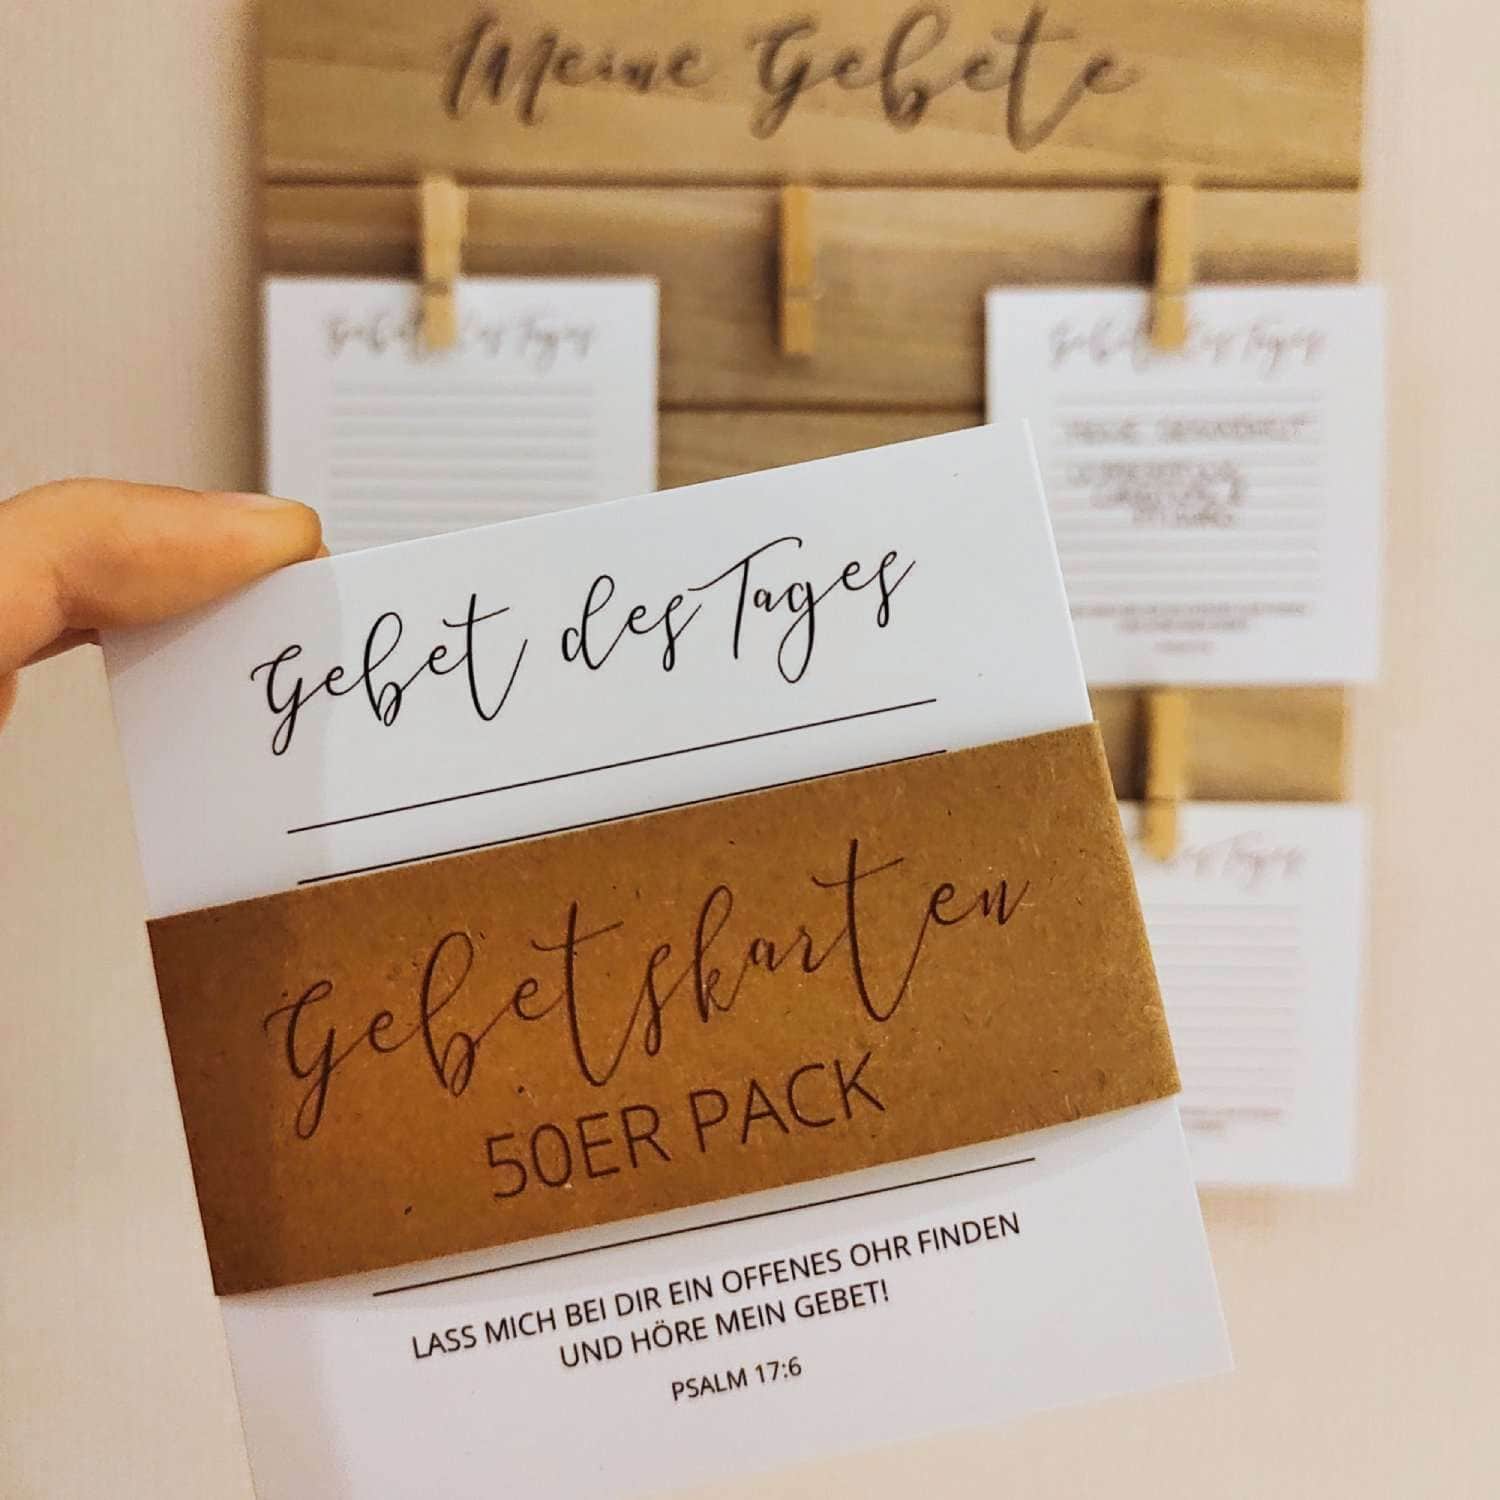 Meine Gebete
Gebet des Tages
Gebet des Tages
Gebet des Tages
Gebetskarten
50ER PACK
LASS MICH BEI DIR EIN OFFENES OHR FINDEN
UND HÖRE MEIN GEBET!
PSALM 17:6
des Tages